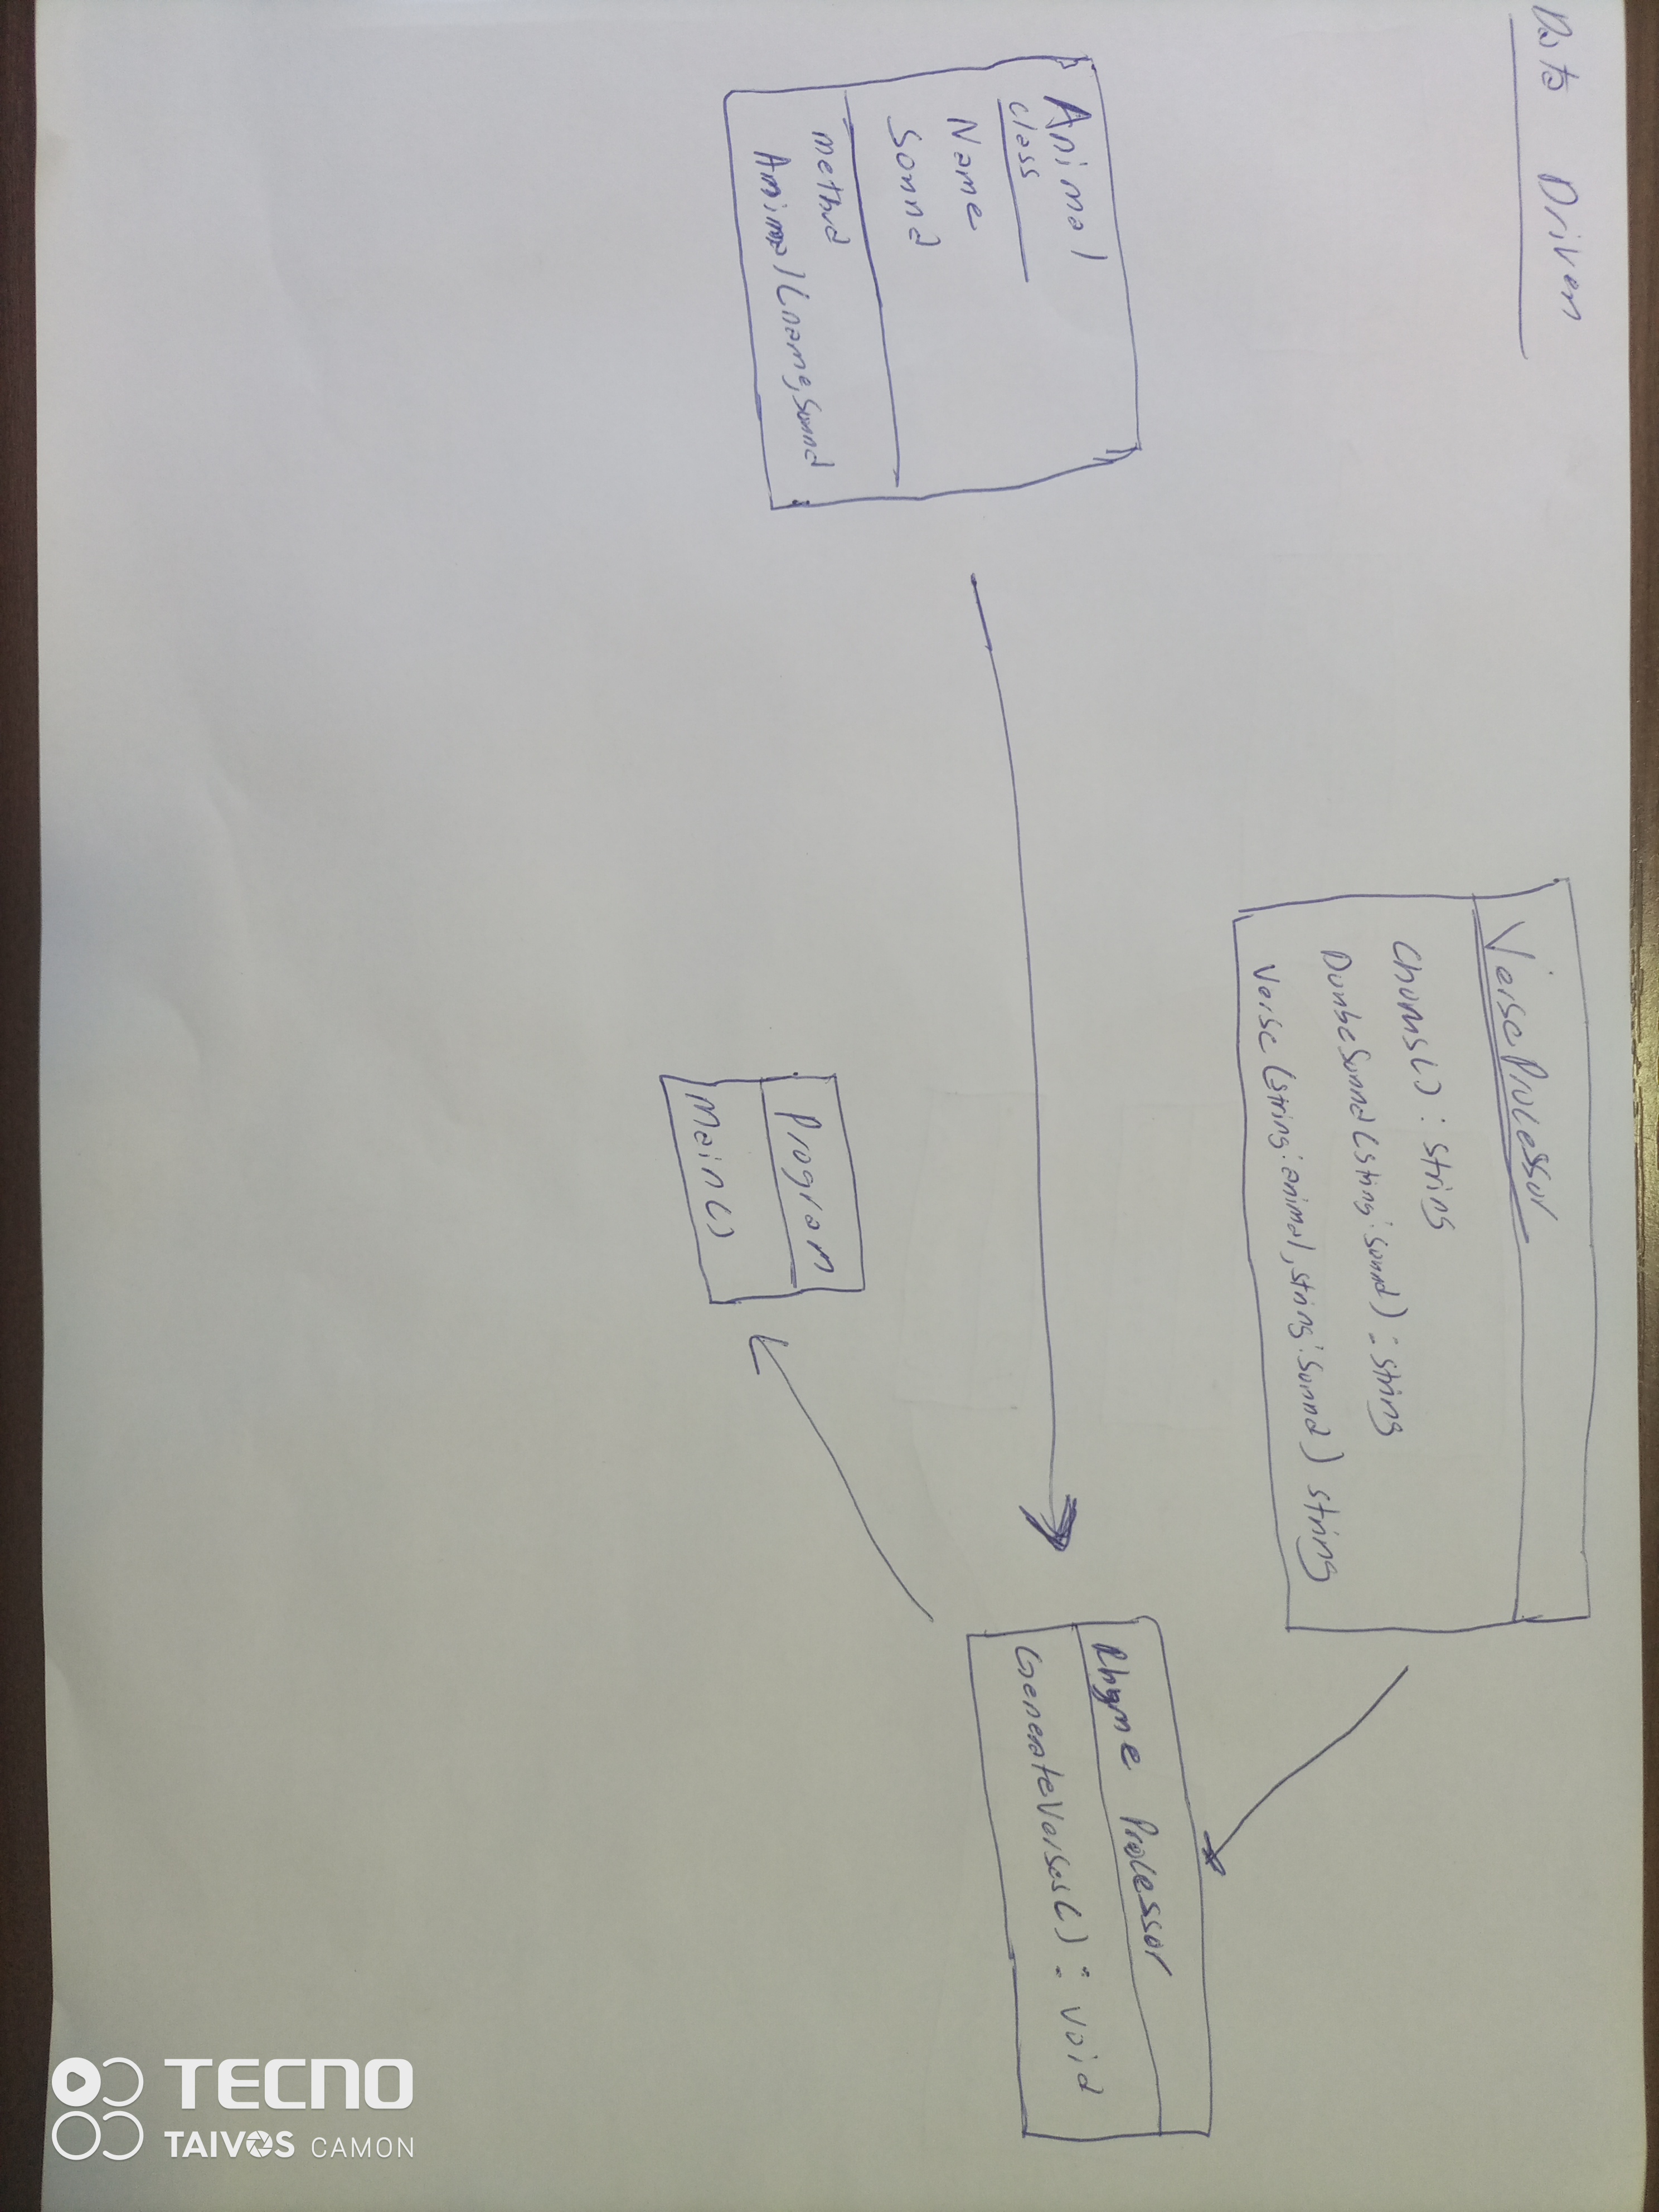 Data Driven
VerseProcessor
Chorus() : string
DoubeSound(string: sound) : string
Verse (string: animal, string: sound) string
Animal
class
Name
Sound
method
Animal(name, sound
Rhyme Processor
GenerateVerses() : void
Program
Main()
TECNO
TAIVOS CAMON